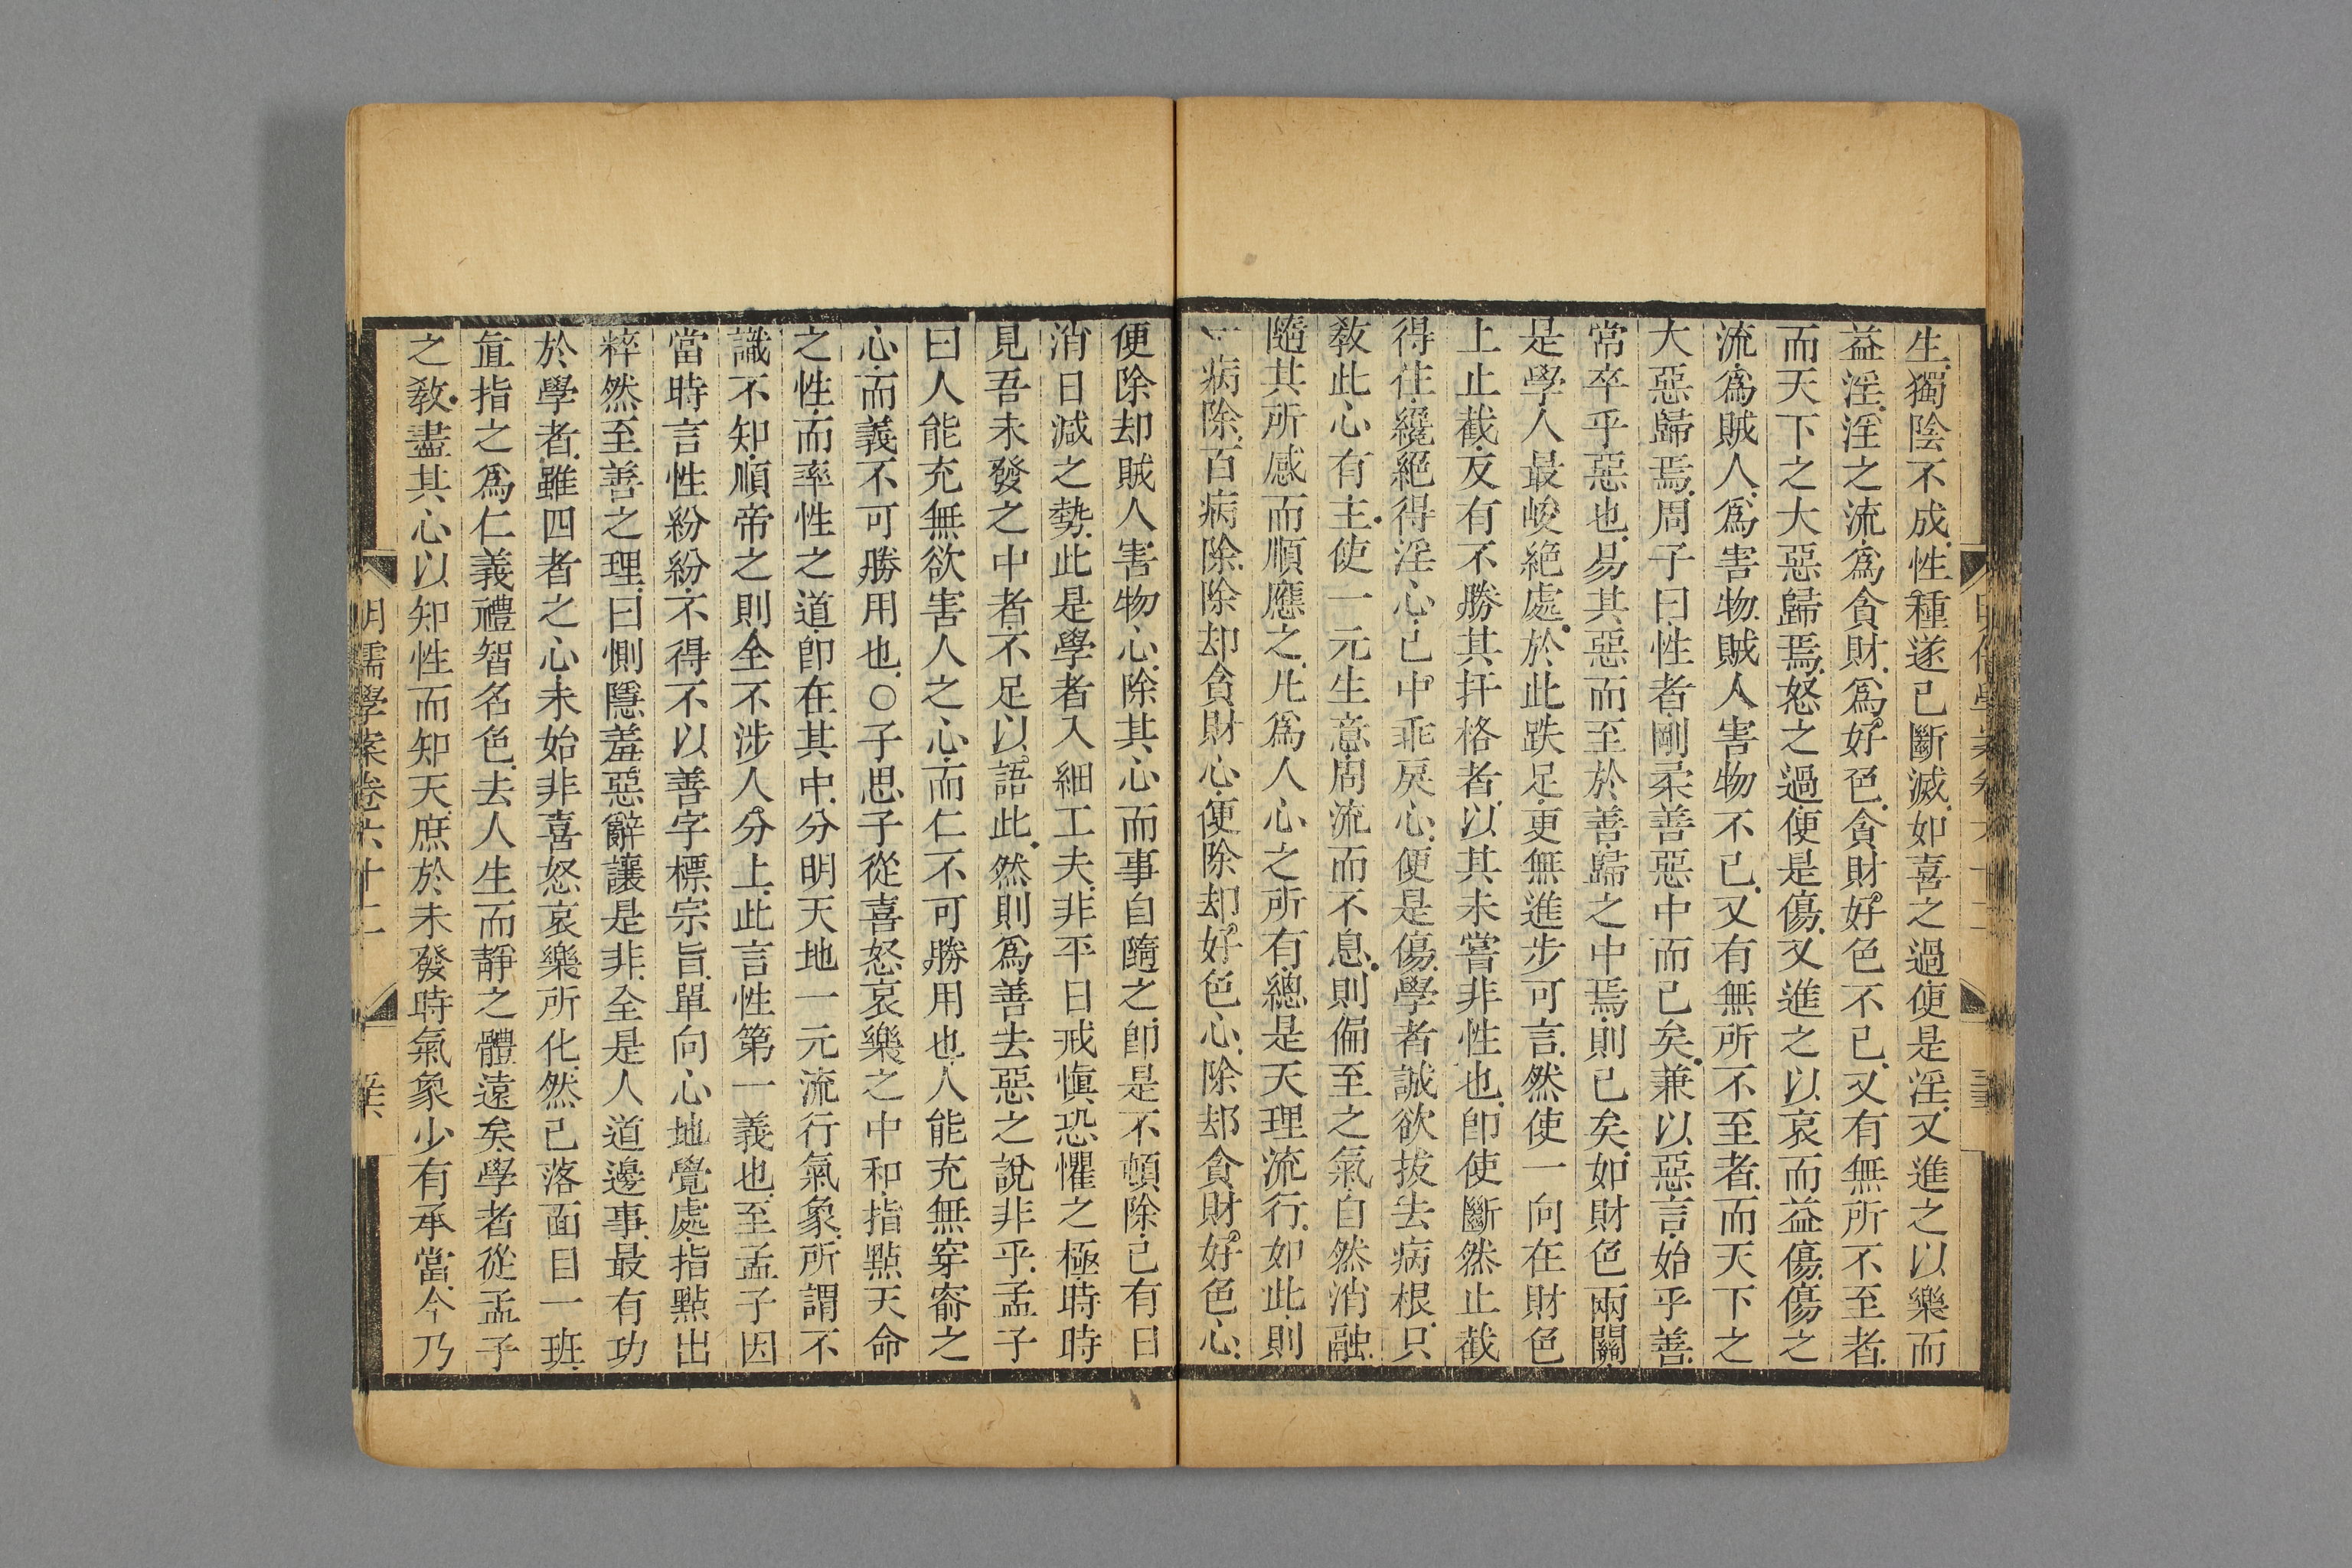 生獨陰不成性種遂已斷滅如喜之過便是淫又進之以樂而
益淫淫之流爲貪財爲好色貪財好色不已又有無所不至者
而天下之大惡歸焉怒之過便是傷又進之以哀而益傷傷之
流爲賊人爲害物賊人害物不已又有無所不至者而天下之
大惡歸焉周子曰性者剛柔善惡中而已矣兼以惡言始乎善
常卒乎惡也易其惡而至於善歸之中焉則已矣如財色兩關
是學人最峻絕處於此跌足更無進步可言然使一向在財色
上止截反有不勝其扞格者以其未嘗非性也卽使斷然止截
得住纔絕得淫心已中乖戾心便是傷學者誠欲拔去病根只
敎此心有主使一元生意周流而不息則偏至之氣自然消融
隨其所感而順應之凡爲人心之所有總是天理流行如此則
一病除百病除除却貪財心便除却好色心除却貪財好色心
便除却賊人害物心除其心而事自隨之卽是不頓除已有日
消日減之勢此是學者入細工夫非平日戒愼恐懼之極時時
見吾未發之中者不足以語此然則爲善去惡之說非乎孟子
曰人能充無欲害人之心而仁不可勝用也人能充無穿窬之
心而義不可勝用也○子思子從喜怒哀樂之中和指點天命
之性而率性之道卽在其中分明天地一元流行氣象所謂不
識不知順帝之則全不涉人分上此言性第一義也至孟子因
當時言性紛紛不得不以善字標宗旨單向心地覺處指點出
粹然至善之理曰惻隱羞惡辭讓是非全是人道邊事最有功
於學者雖四者之心未始非喜怒哀樂所化然已落面目一班
直指之爲仁義禮智名色去人生而靜之體遠矣學者從孟子
之敎盡其心以知性而知天庶於未發時氣象少有承當今乃
明儒學案卷六十二